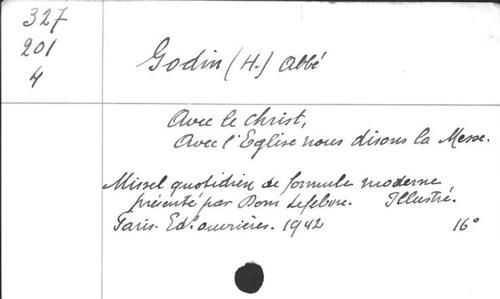 327
201
4
Godin (H.) Abbé
Avec le Christ,
Avec l'Eglise nous disons la Messe.
Missel quotidien de formule moderne
présenté par Dom Lefebvre. Illustré.
Paris. Ed. ouvrières. 1942 16°